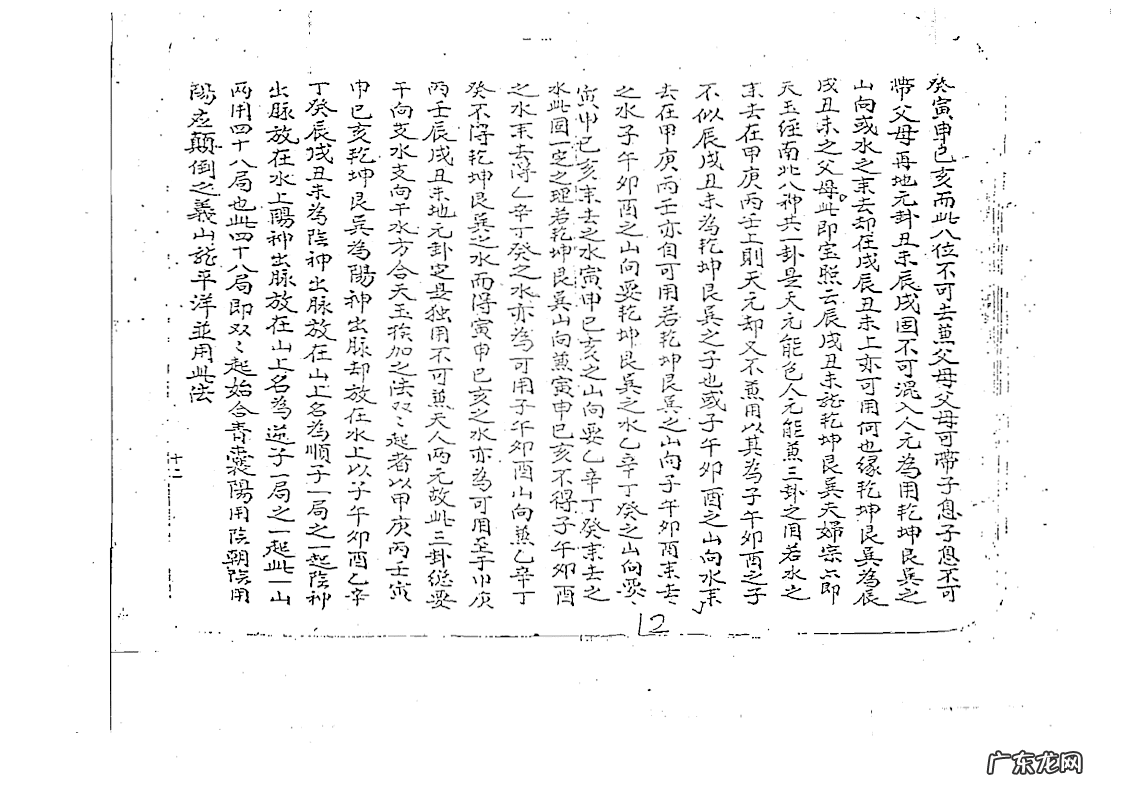 癸寅申巳亥而此八位不可去兼父母父母可帶子息子息不可
帶父母再地元卦丑未辰戌固不可混入人元為用乾坤艮巽之
山向或水之来去却在戌辰丑未上亦可用何也缘乾坤艮巽為辰
戌丑未之父母此即宝照云辰戌丑未龙乾坤艮巽夫婦宗六即
天玉经南北八神共一卦是天元能包人元能兼三卦之用若水之
来去在甲庚丙壬上則天元却又不兼用以其為子午卯酉之子
不似辰戌丑未為乾坤艮巽之子也或子午卯酉之山向水来
去在甲庚丙壬亦自可用若乾坤艮巽之山向子午卯酉来去
之水子午卯酉之山向要乾坤艮巽之水乙辛丁癸之山向要
寅申巳亥来去之水寅申巳亥之山向要乙辛丁癸来去之
水此固一定之理若乾坤艮巽山向兼寅申巳亥不得子午卯酉
之水来去得乙辛丁癸之水亦為可用子午卯酉山向兼乙辛丁
癸不得乾坤艮巽之水而得寅申巳亥之水亦為可用至于甲庚
丙壬辰戌丑未地元卦定是独用不可兼天人两元故此三卦总要
干向支水支向干水方合天玉挨加之法双〻起者以甲庚丙壬寅
申巳亥乾坤艮巽為陽神出脉却放在水上以子午卯酉乙辛
丁癸辰戌丑未為陰神出脉放在山上名為順子一局之一起陰神
出脉放在水上陽神出脉放在山上名為逆子一局之一起此一山
两用四十八局也此四十八局即双〻起始合青囊陽用陰朝陰用
陽应顛倒之義山龙平洋並用此法
十二
12
广东龙网